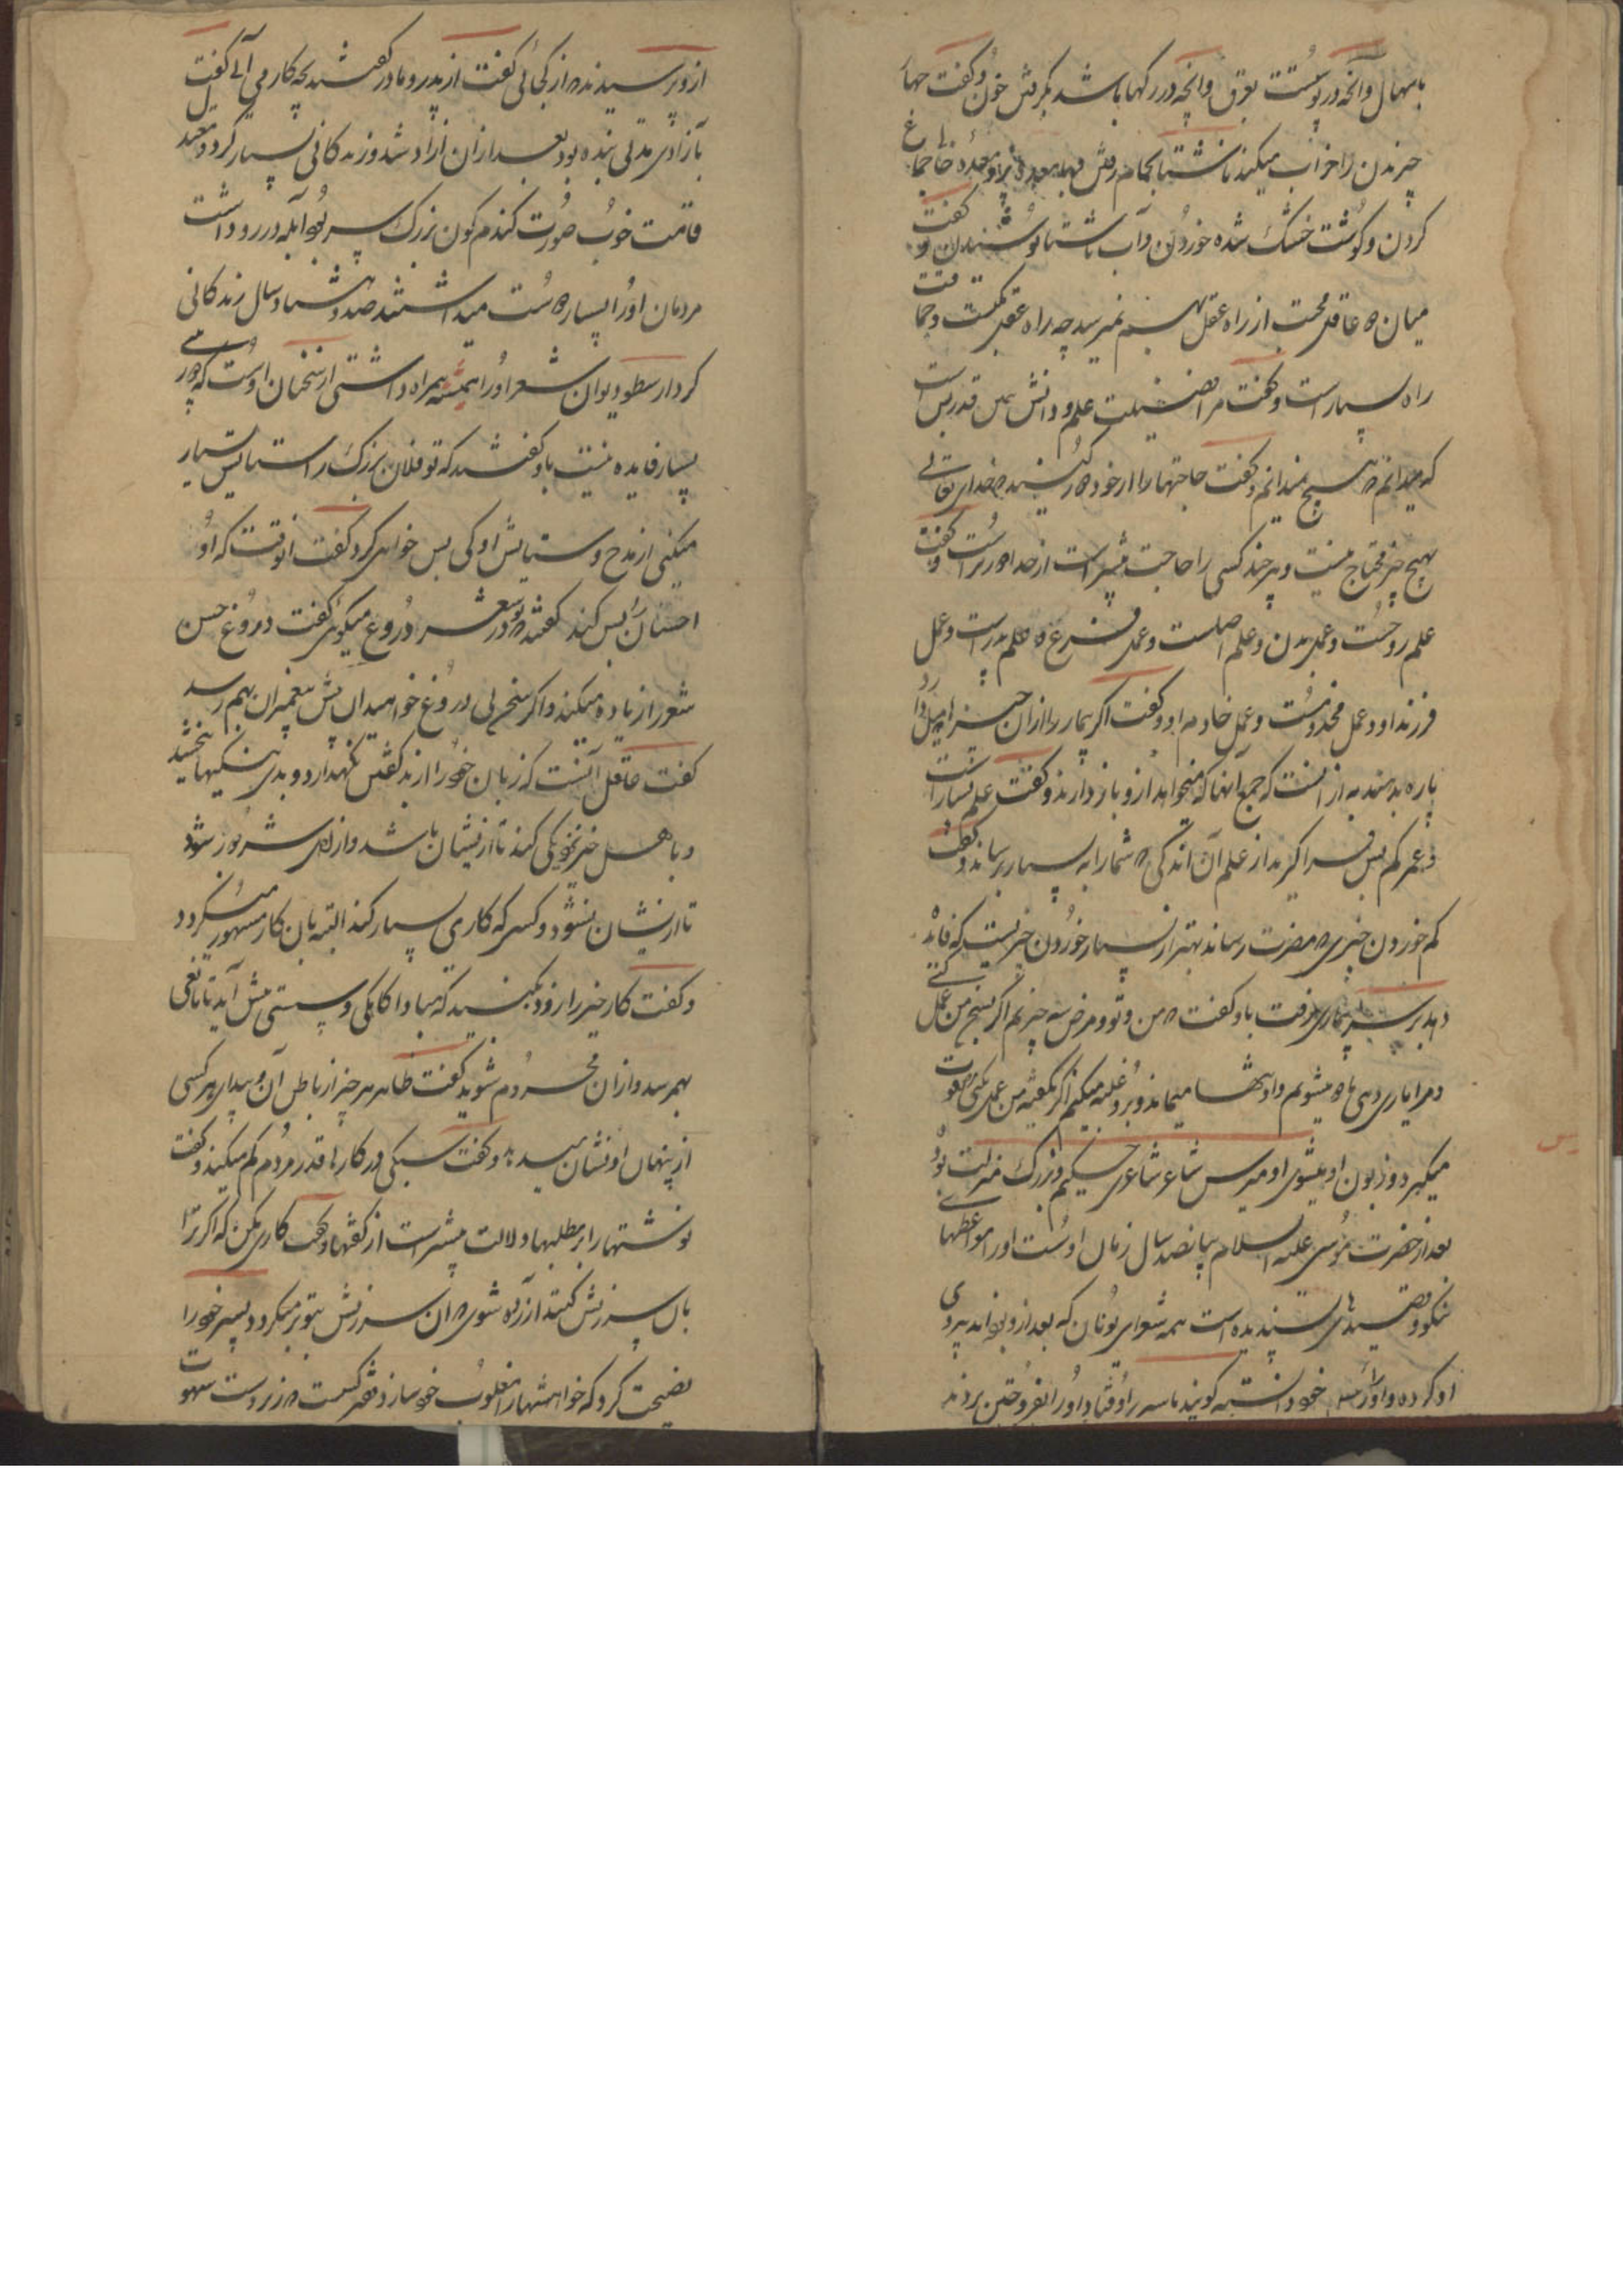 باسهال وآنچه در پوستست بعرق وآنچه در رگها باشد بگرفتن خون وگفت چهار
چیز بدن را خراب میکند ناشتا بحمام رفتن وبا معده پر جماع
کردن وگوشت خشک شده خوردن وآب ناشتا نوشیدن وگفت
میان دو عاقل محبت از راه عقل بهم نمیرسد چه راه عقل یکیست
راه بسیار است وگفت مرا از فضیلت علم ودانش همین قدر بس است
که میدانم که هیچ نمیدانم وگفت حاجتها را از خود دور کنید که خدای تعالی
بهیچ چیز محتاج نیست وهر چند کسی را حاجت بیشتر است از خدا دورتر است وگفت
علم روحست وعمل بدن وعلم اصلست وعمل فرع وعلم پدر است وعمل
فرزند او وعلم مخدومست وعمل خادم او وگفت اگر بیمار را از آن چیز که میل دارد
پاره بدهند به از آنست که جمیع آنها که میخواهد ازو باز دارند وگفت علم بسیار است
وعمر کم پس فرا گیرید از علم آن اندکی که شما را به بسیار برساند وگفت
کم خوردن چیزی که مضرت رساند بهتر از بسیار خوردن چیزیست که فایده
دهد بر سر بیماری رفت باو گفت که من وتو ومرض سه چیزیم اگر بسخن من عمل کنی
ومرا یاری دهی ما دو میشویم واو تنها میماند وبرو غلبه میکنیم اگر بگفته من عمل نکنی مرض قوت
میگیرد وزبون او میشوی اومیرس شاعر شاعری حکیم وبزرگ منزلت بود
بعد از حضرت موسی علیه السلام بپانصد سال زمان اوست او را موعظهای
نیکو وقصیدهای پسندیده است همه شعرای یونان که بعد ازو بوده‌اند پیروی
او کرده واو را خود دانسته گویند باسیری افتاد واو را بفروختن بردند
ازو پرسیدند که از کجائی گفت از پدر ومادر گفتند بچه کار می آئی گفت
بآزادی مدتی بنده بود بعد از آن آزاد شد وزندگانی بسیار کرد معتدل
قامت خوب صورت گندم گون بزرگ سر بود آبله در رو داشت
مردمان او را بسیار دوست میداشتند صد وهشتاد سال زندگانی
کرد ارسطو دیوان شعر او را همیشه همراه داشتی از سخنان اوست که
بسیار فایده نیست باو گفتند که تو فلان بزرگ را ستایش بسیار
میکنی از مدح وستایش او کی بس خواهی کرد گفت آنوقت که او
احسان را بس کند گفتند تو در شعر دروغ میگوئی گفت دروغ حسن
شعر را زیاده میکند واگر سخن بی دروغ خواهید آن پیش پیغمبران بهم رسد
گفت عاقل آنست که زبان خود را از بد گفتن نگهدارد وبدی بنیکیها بخشد
وبا اهل خیر نزدیکی کند تا ازیشان باشد واز اهل شر دور شود
تا ازیشان نشود وکسی که کاری بسیار کند البته بآن کار مشهور میگردد
وگفت کار خیر را زود بکنید که مبادا کاهلی وسستی پیش آید تا مانعی
بهم رسد واز آن محروم شوید گفت ظاهر هر چیز از باطن آن وپیدای هر کسی
از پنهان او نشان میدهد وگفت سبکی در کارها قدر مردم کم میکند وگفت
نوشتها را بر مطلبها دلالت بیشتر است از گفتها وگفت کاری مکن که اگر ترا
بآن سرزنش کنند آزرده شوی که آن سرزنش بتو بر میگردد وپسر خود را
نصیحت کرد که خواهشها را مغلوب خود ساز وفقیر کسیست که زیر دست شهوت